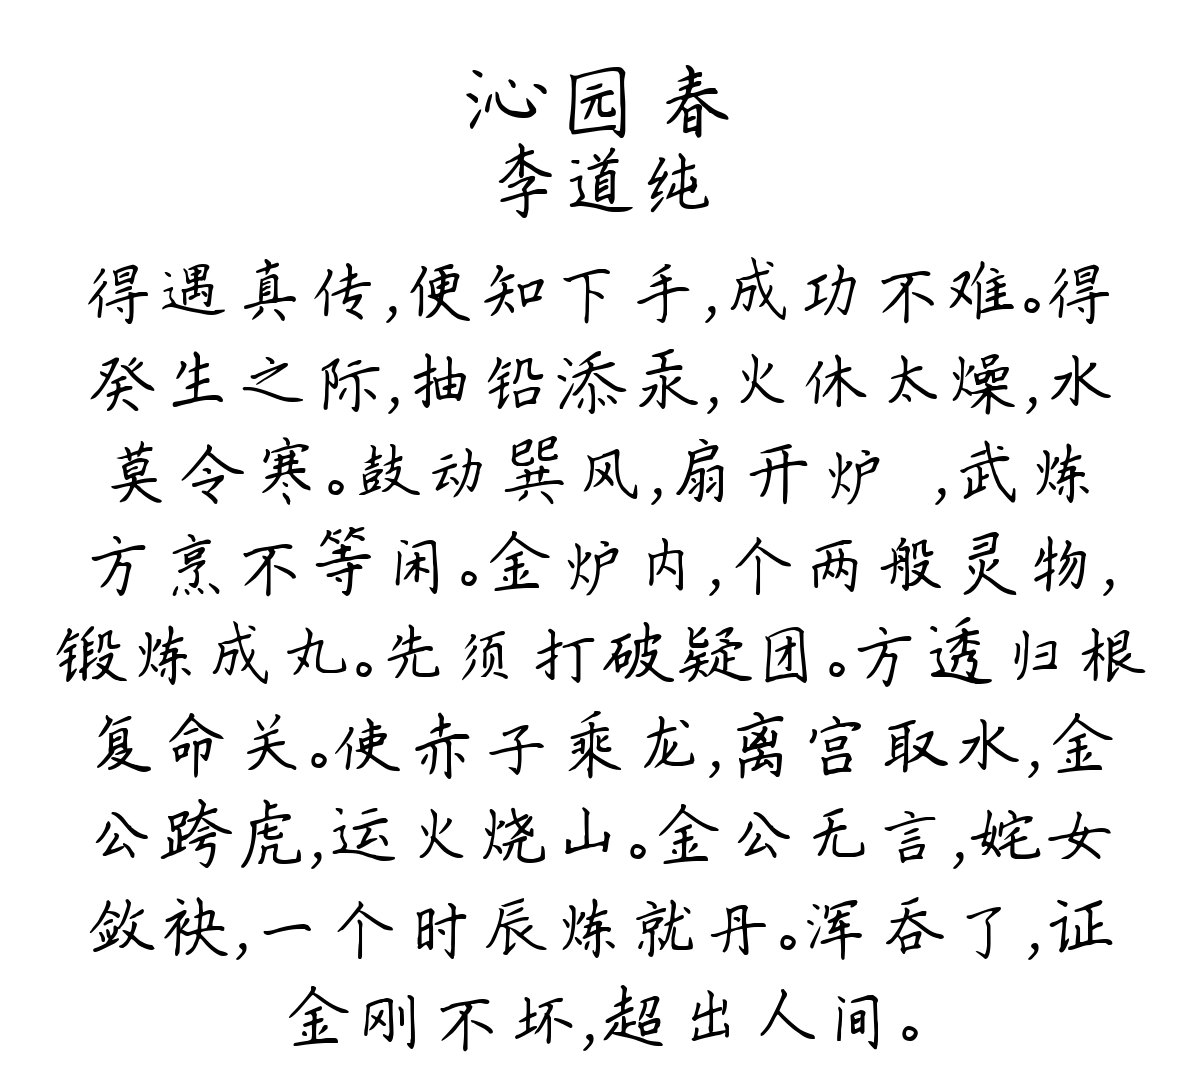 沁园春
李道纯
得遇真传,便知下手,成功不难。得
癸生之际,抽铅添汞,火休太燥,水
莫令寒。鼓动巽风,扇开炉 ,武炼
方烹不等闲。金炉内,个两般灵物,
锻炼成丸。先须打破疑团。方透归根
复命关。使赤子乘龙,离宫取水,金
公跨虎,运火烧山。金公无言,姹女
敛袂,一个时辰炼就丹。浑吞了,证
金刚不坏,超出人间。